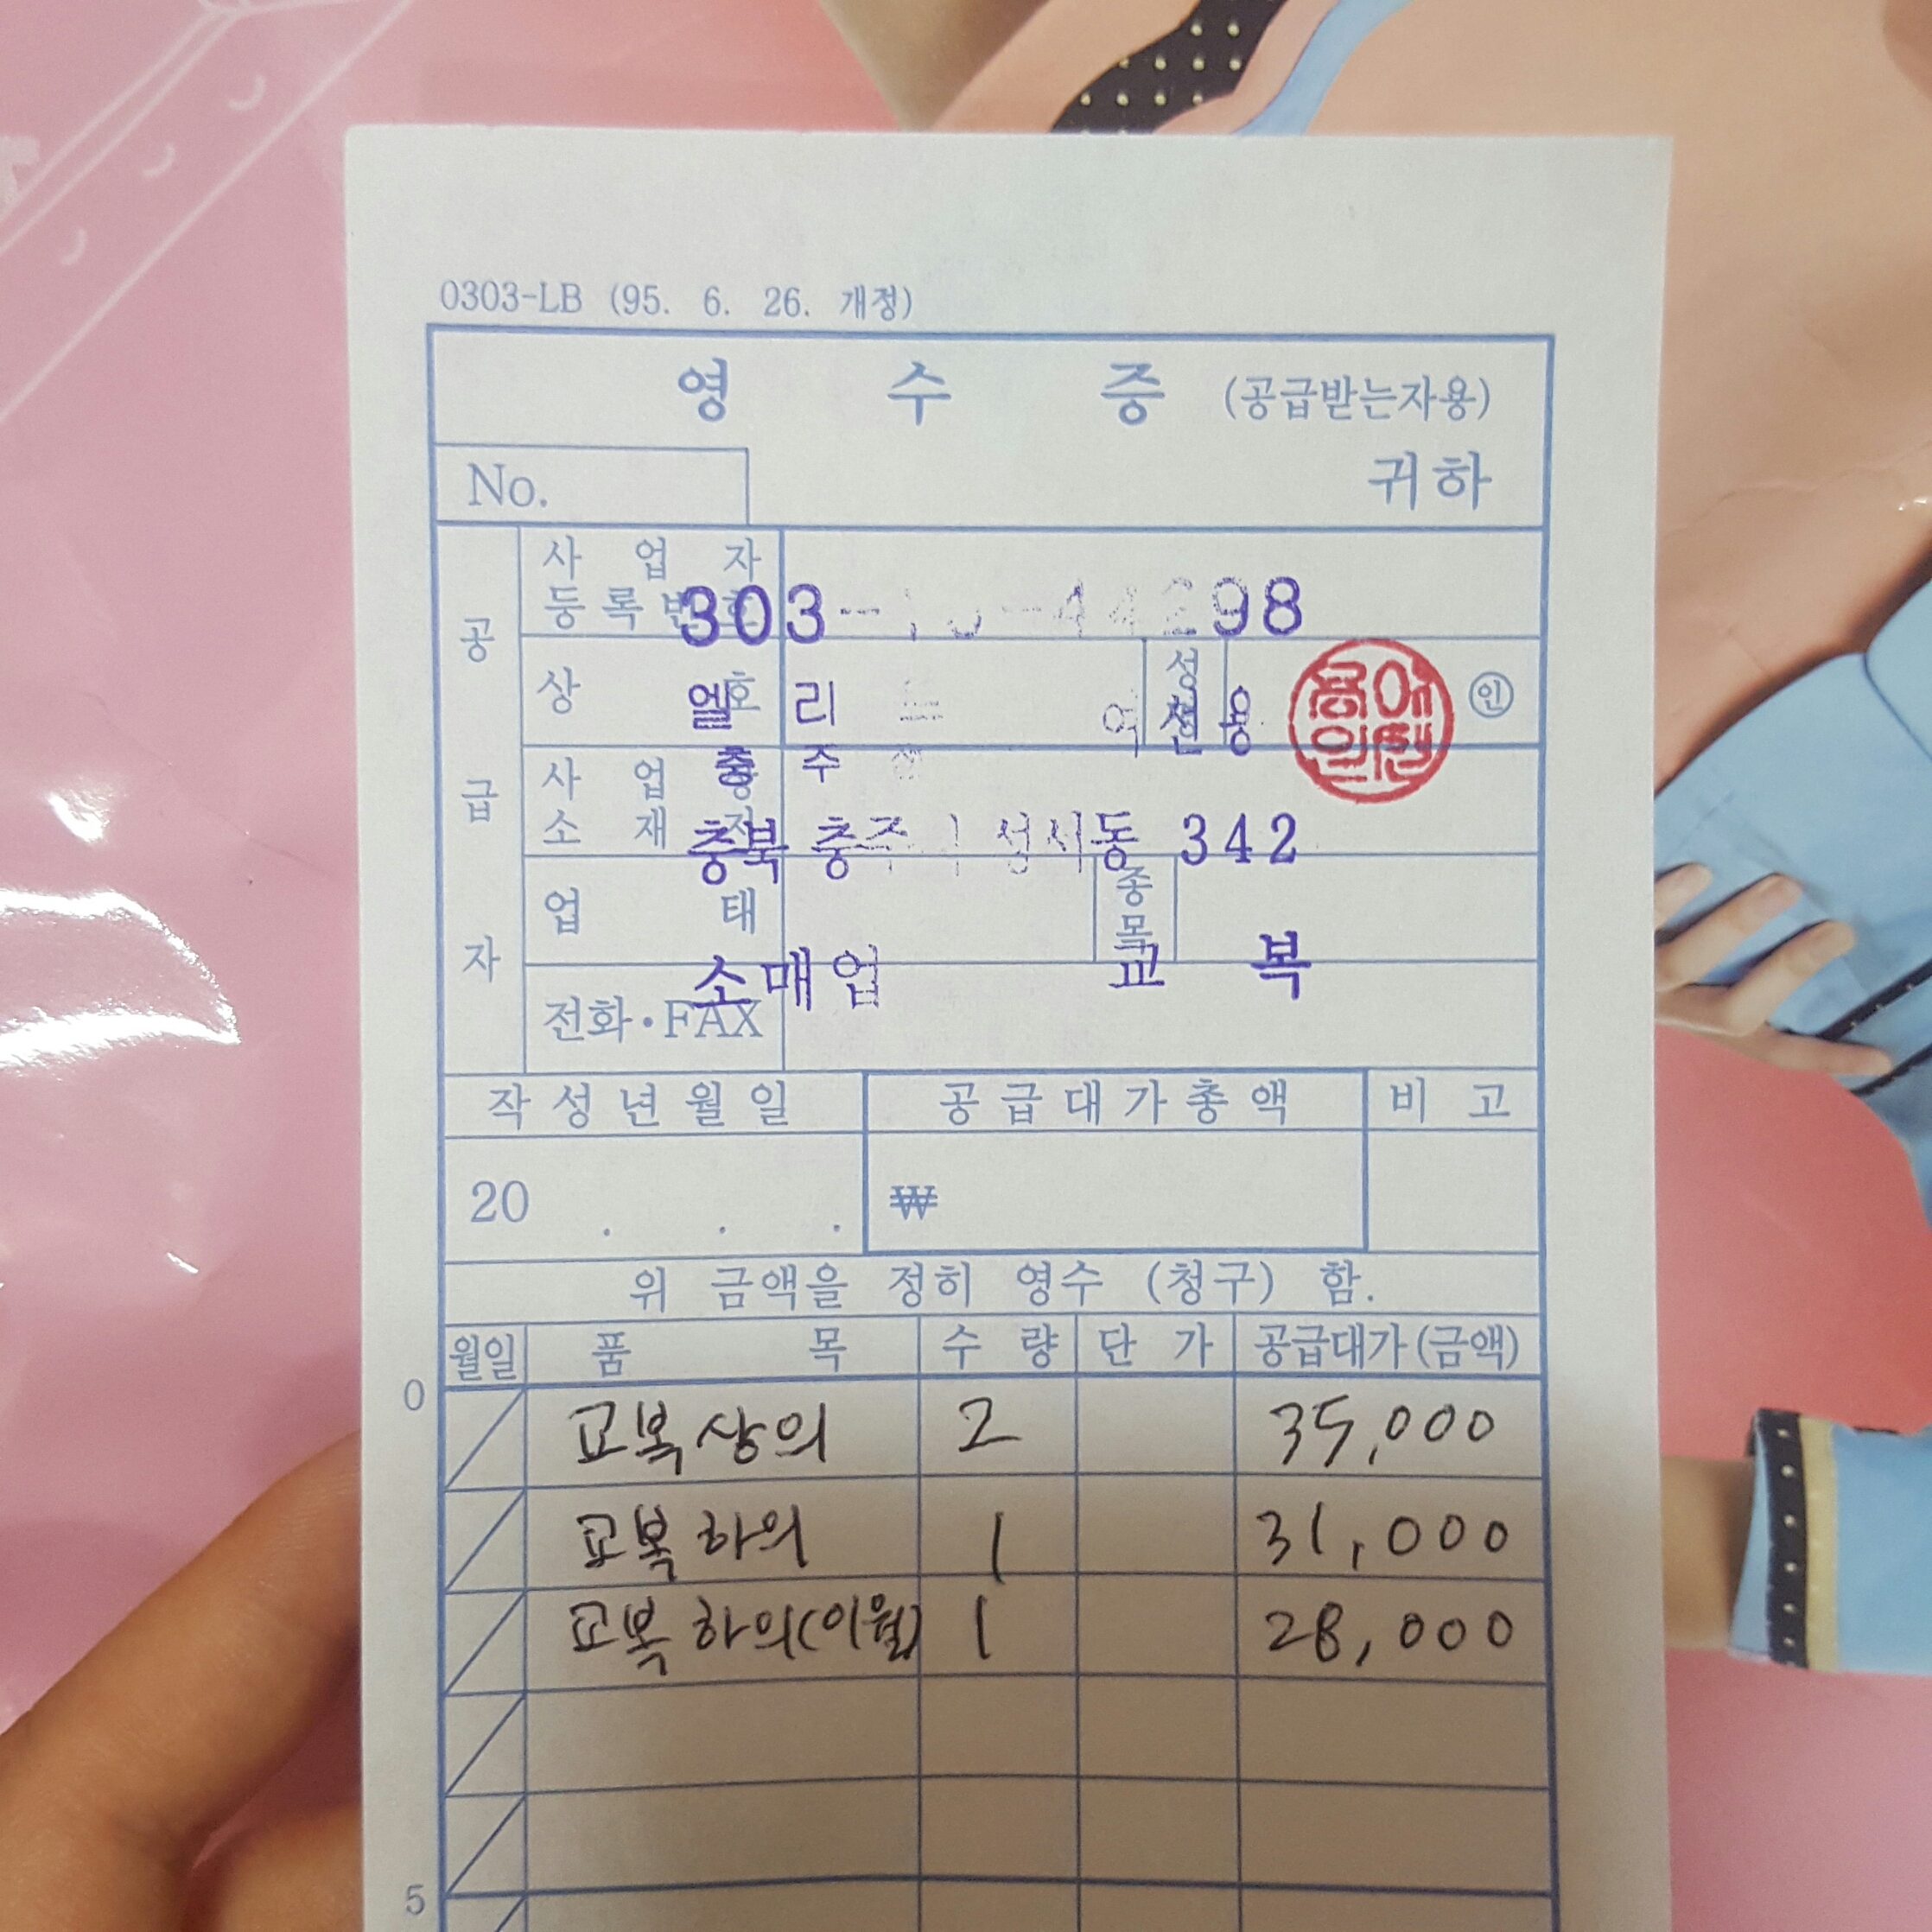 0303-LB (95. 6. 26. 개정)
영 수 증 (공급받는자용)
No. 귀하
공급자
사업자등록번호 303-10-44298
상호 엘리트 성 선용 인
충주
사업 소재지 충북 충주시 성서동 342
업태 소매업 종목 교복
전화·FAX
작성년월일 공급대가총액 비고
20 . . . ₩
위 금액을 정히 영수 (청구) 함.
월일 품목 수량 단가 공급대가(금액)
0
교복 상의 2 35,000
교복 하의 1 31,000
교복 하의(이월) 1 28,000
5